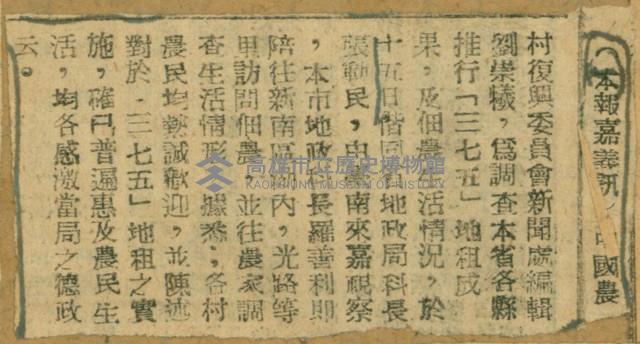 （本報嘉義訊）中國農
村復興委員會新聞處編輯
劉崇犧，爲調查本省各縣
推行「三七五」地租成
果，及佃農生活情況，於
十五日偕同地政局科長
張動民，由台南來嘉視察
，本市地政科長羅善利即
陪往新南區湖內，光路等
里訪問佃農，並往農家調
查生活情形，據悉，各村
農民均熱誠歡迎，並陳述
對於「三七五」地租之實
施，確已普遍惠及農民生
活，均各感激當局之德政
云。
高雄市立歷史博物館
KAOHSIUNG MUSEUM OF HISTORY